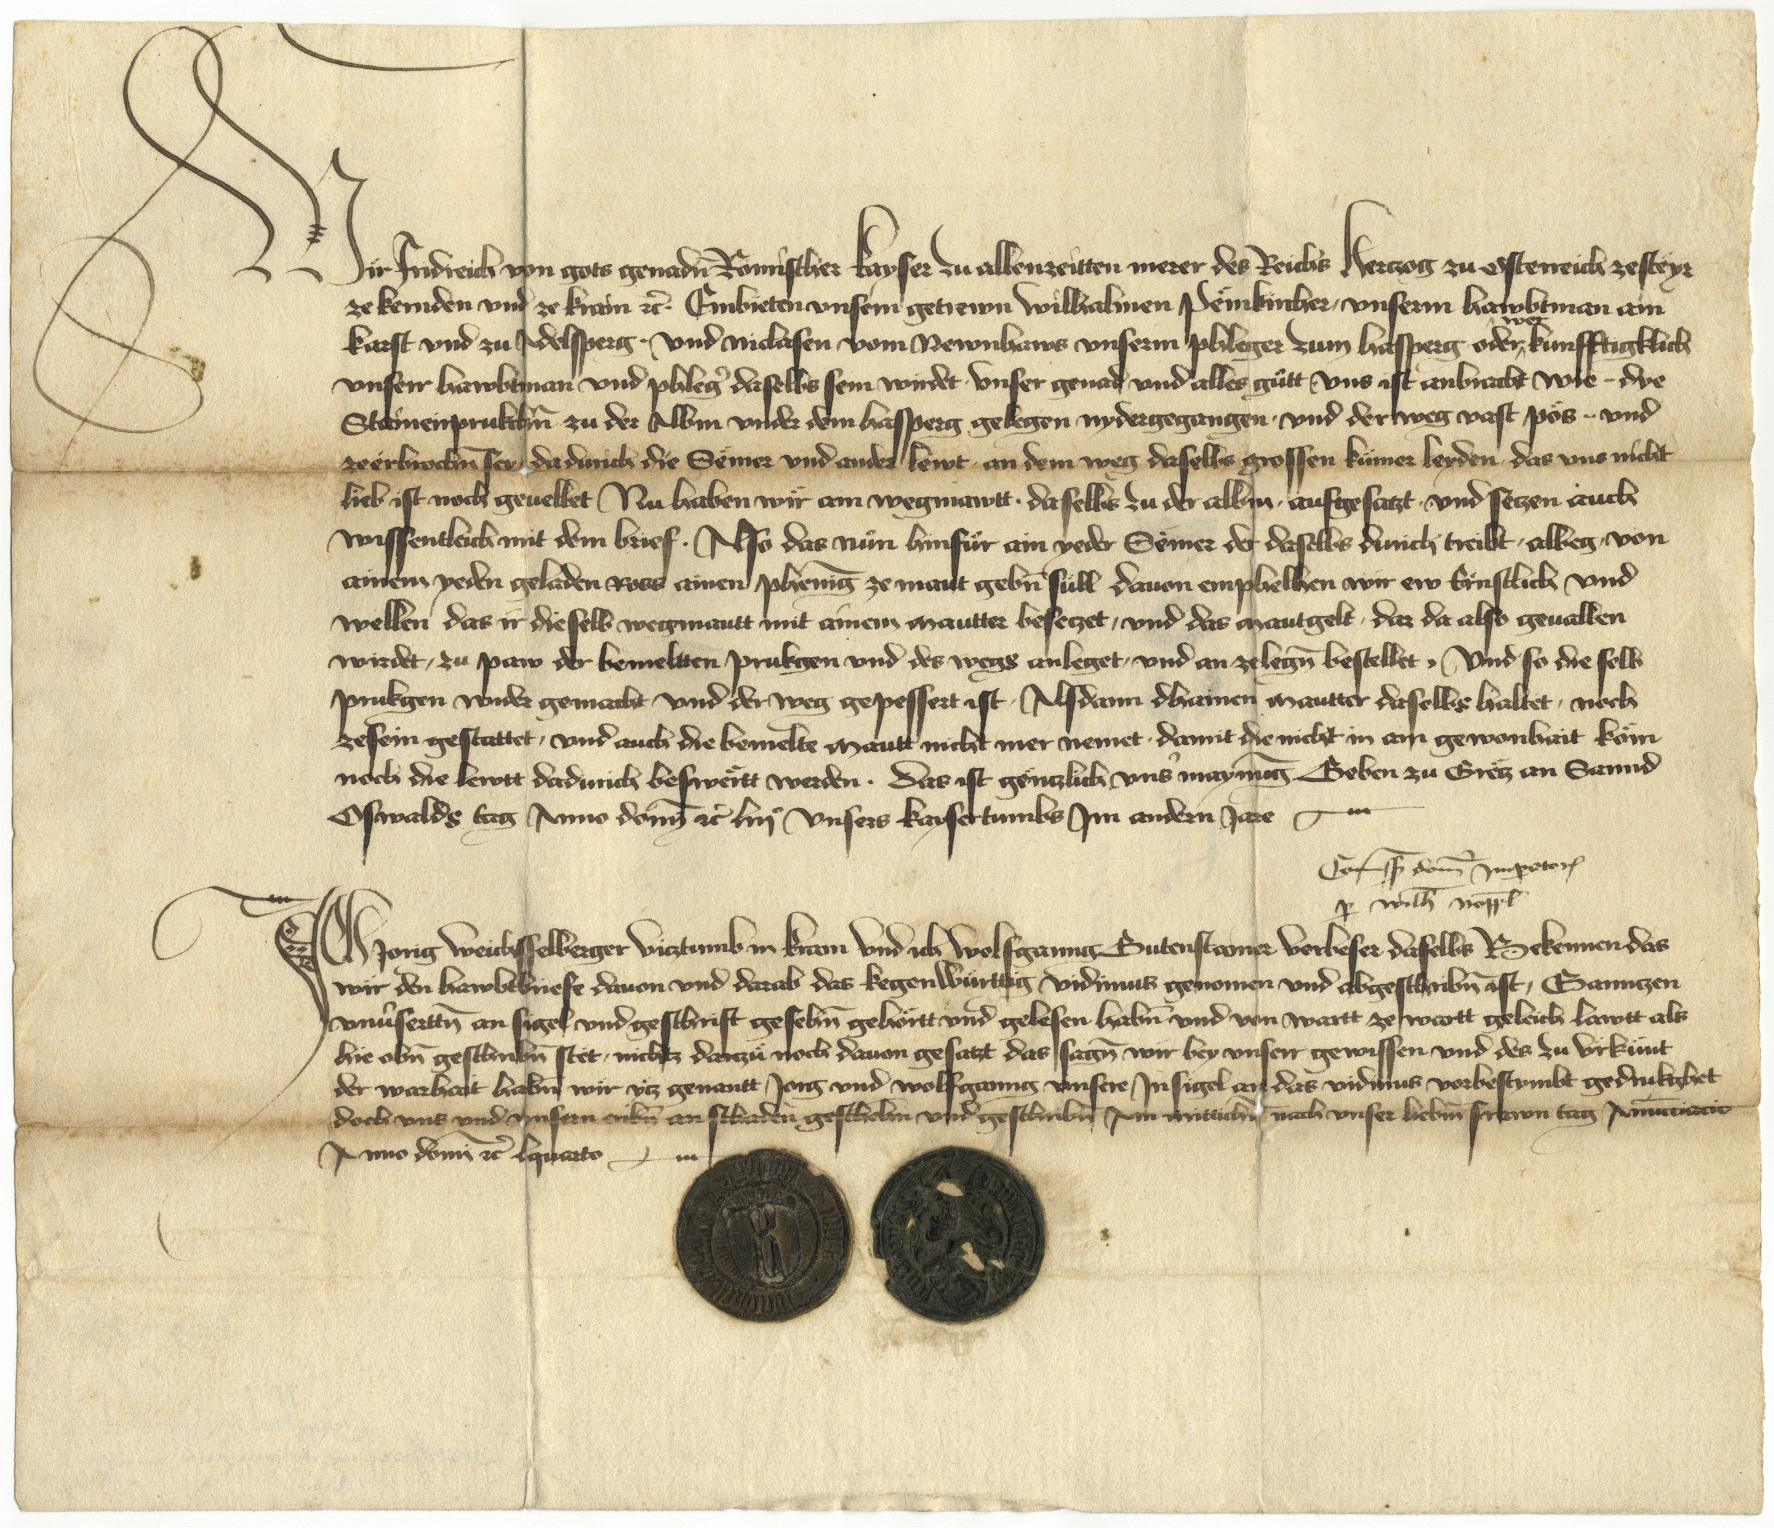 Wir Fridreich von gots genadn Romischer kayser zu allenzeitten merer des Reichs Herczog zu Osterreich zesteyr
ze kernden vnd ze krain ꝛc. Embieten vnserm getrewn wilhalmen Pernkircher, vnserm hawbtman am
karst vnd zu Adelsperg. vnd niclasen vom Newnhaws vnserm phleger zum hasperg oder wer kunfftigklich
vnser hawbtman vnd phleger daselbs sein wirdet vnser genad vnd alles gůtt vns ist anbracht wie dye
Stainenprukchn zu der Albm vnder dem hasperg gelegen nydergegangen vnd der weg vast pös vnd
zeerbrochn sey, dadurch die Sëmer vnd ander lewt an dem weg daselbs grossen kumer leyden das vns nicht
lieb ist noch geuellet Nu haben wir ain wegmawtt daselbs zu der albm aufgesatzt vnd setzen auch
wissentleich mit dem brief. Also das nŭn hinfŭr ain yeder Sëmer der daselbs durich treibt, albeg von
ainem yeden geladen ross ainen phenig ze maut gebn sŭll dauon emphelhen wir ew Ernstlich vnd
wellen das ir dieselb wegmautt mit ainem mautter besetzet, vnd das mautgelt, dar da also geuallen
wirdet, zu paw der bemeltten prukgen vnd des wegs anleget, vnd an zelegn bestellet, Vnd so die selb
prukgen wider gemacht vnd der weg gepessert ist, Alsdann dhainen mautter daselbs haltet, noch
zesein gestattet, vnd auch die bemelte mautt nicht mer nemet damit die nicht in ain gewonhait köm
noch die lewtt dadurich beswërtt werden. Das ist gëntzlich vnser maynung Geben zu Gretz an Sannd
Oswalds tag Anno domini ꝛc liijº Vnsers kaysertumbs Im andern Jare
domini imperatoris
Ich Jorig weichsselberger viztumb in krain vnd ich wolfgannng Gutenstainer verbeser daselbs Bekennen das
wir den hawbtbriefe dauon vnd darab das kegenwŭrttig vidimus genomen vnd abgeschribn ist, Ganntzen
vnŭersertten an sigel vnd geschrift gesehn gehörtt vnd gelesen habn vnd von wartt ze wortt geleich lawtt als
hie obn geschribn stet, nichtz darzŭ noch dauon gesatzt das sagn wir bey vnserr gewissen vnd des zu vrkŭnt
der warhait habn wir ytz genantt Jorg vnd wolfganng vnsere Insigel an das vidimus vorbestymbt gedrukghet
doch vns vnd vnsern eribn an schaden geschehn vnd geschribn Am mittichn nach vnser liebm frawn tag Annunciacio
Anno domini ꝛc lquarto